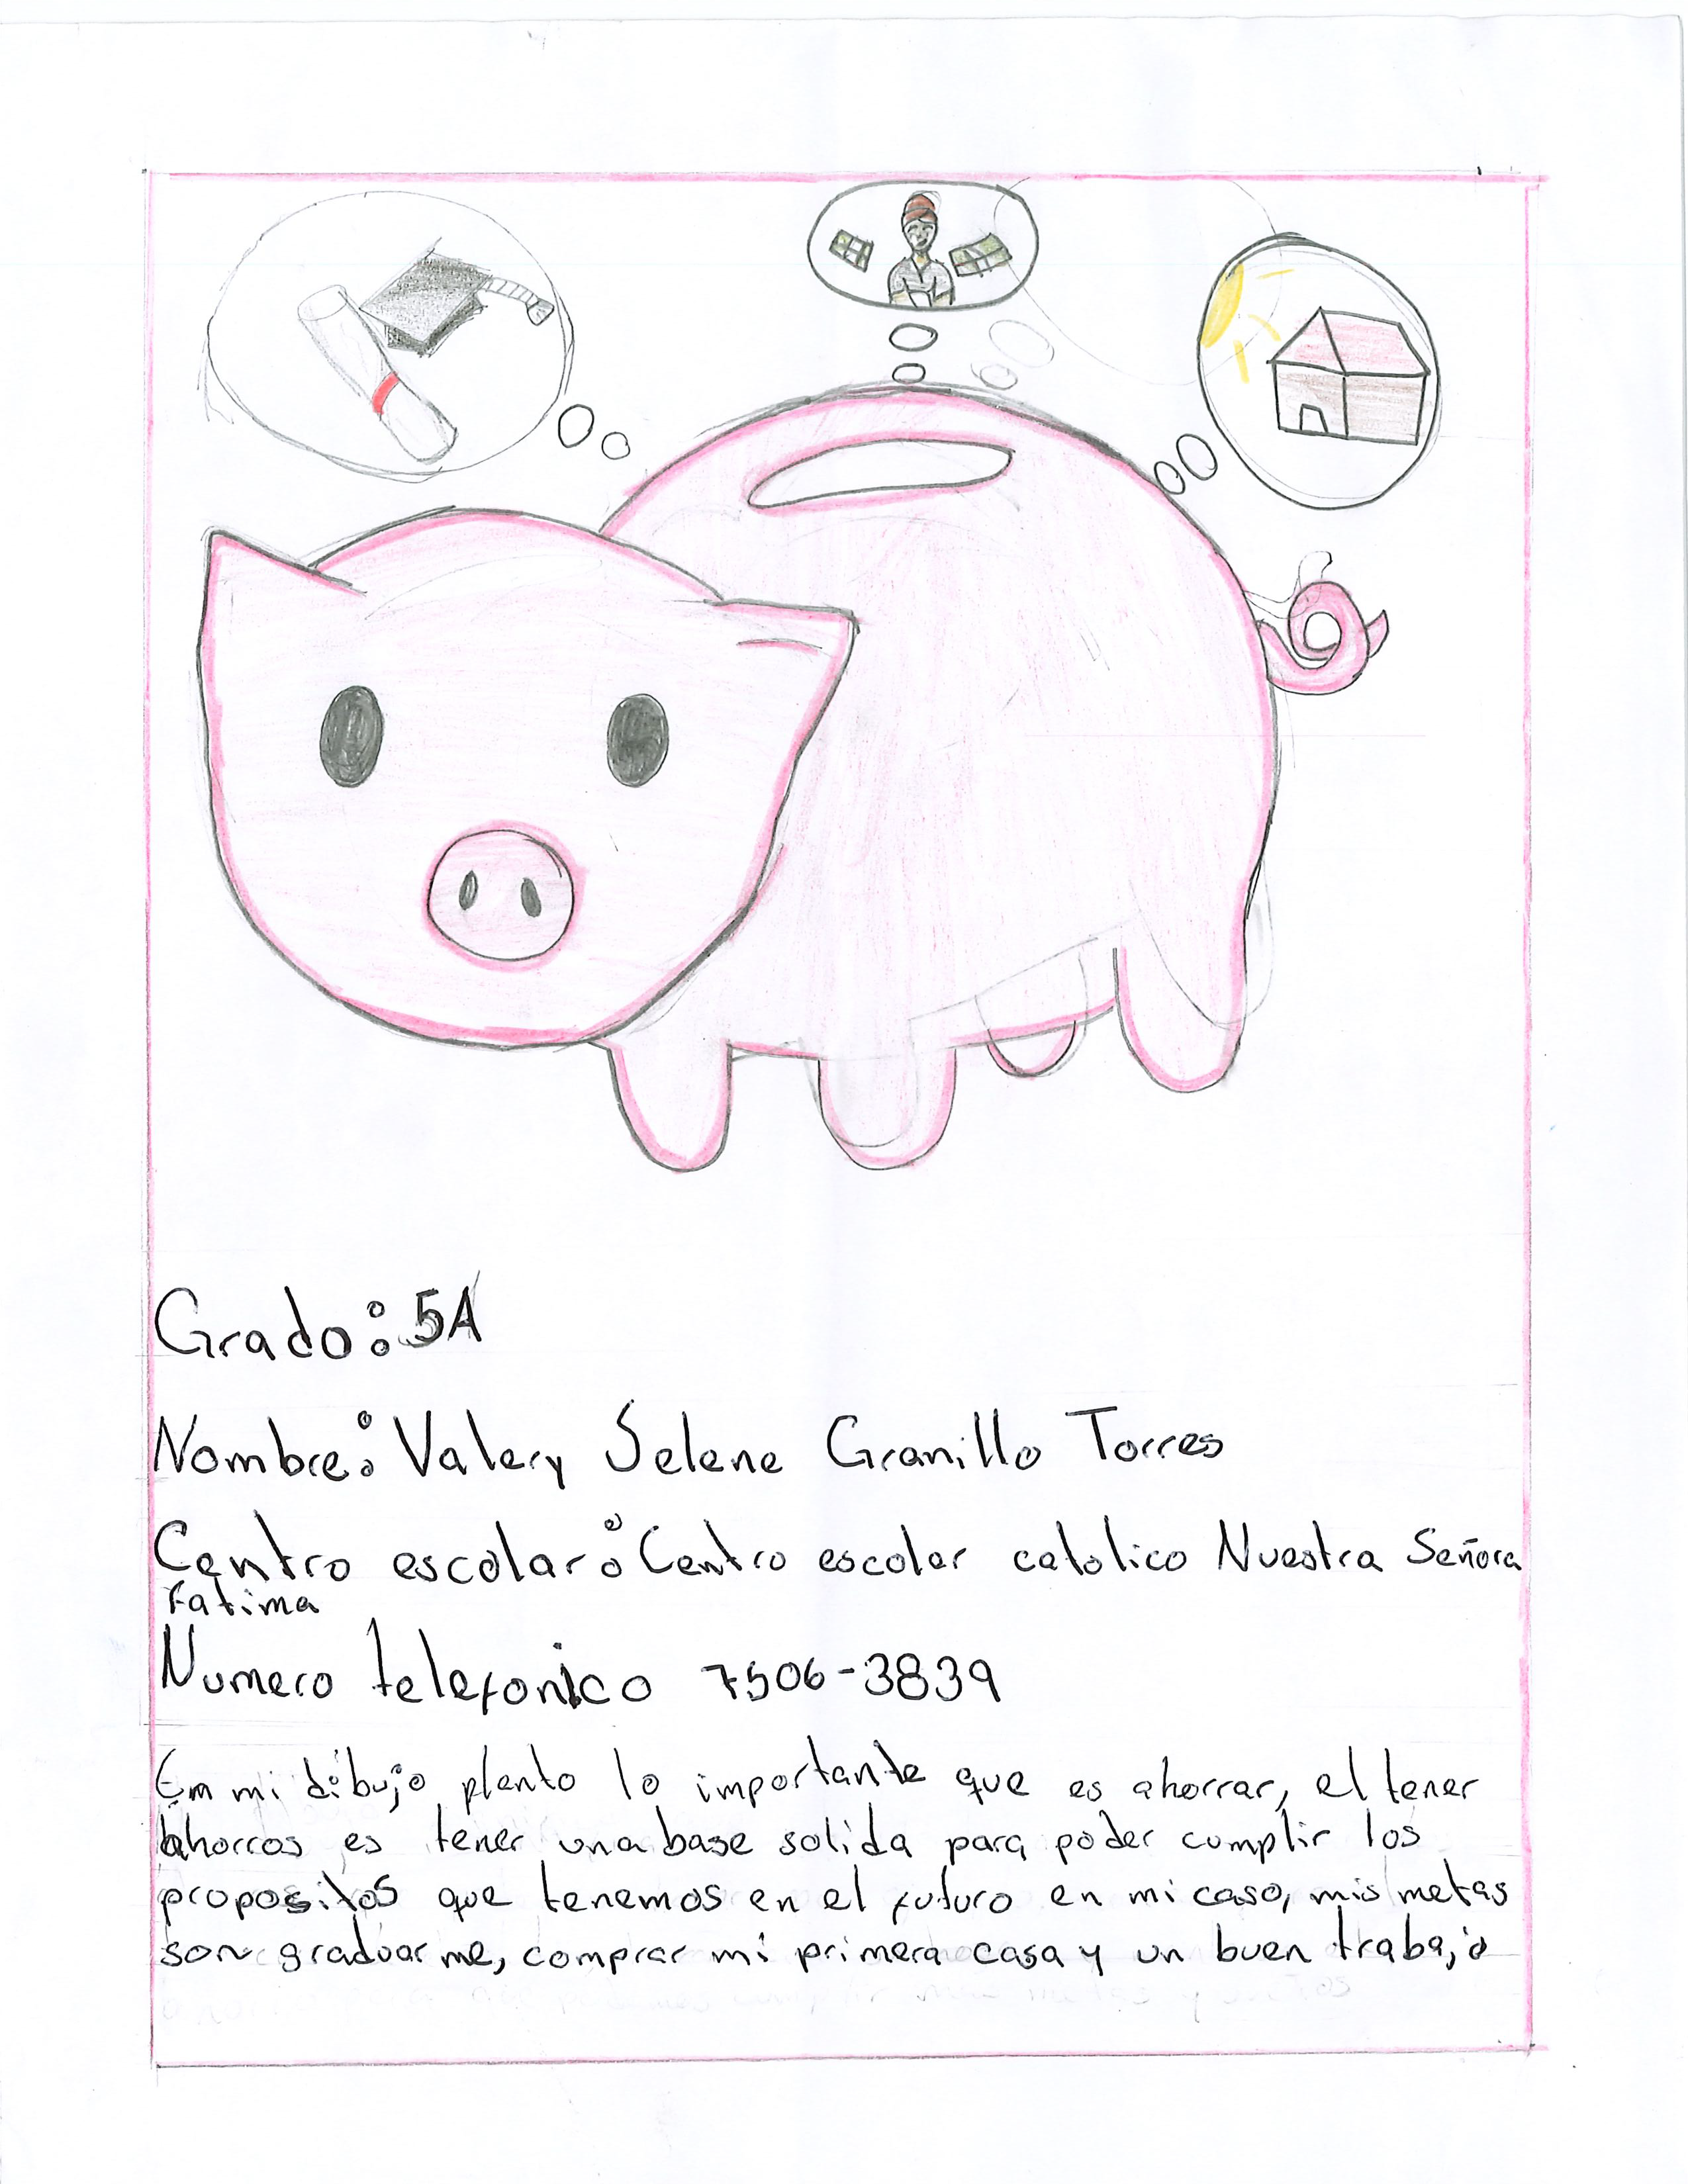 Grado: 5A
Nombre: Valery Selene Granillo Torres
Centro escolar: Centro escolar catolico Nuestra Señora
Fatima
Numero telefonico 7506-3839
En mi dibujo planto lo importante que es ahorrar, el tener
ahorros es tener una base solida para poder cumplir los
propositos que tenemos en el futuro en mi caso, mis metas
son graduarme, comprar mi primera casa y un buen trabajo